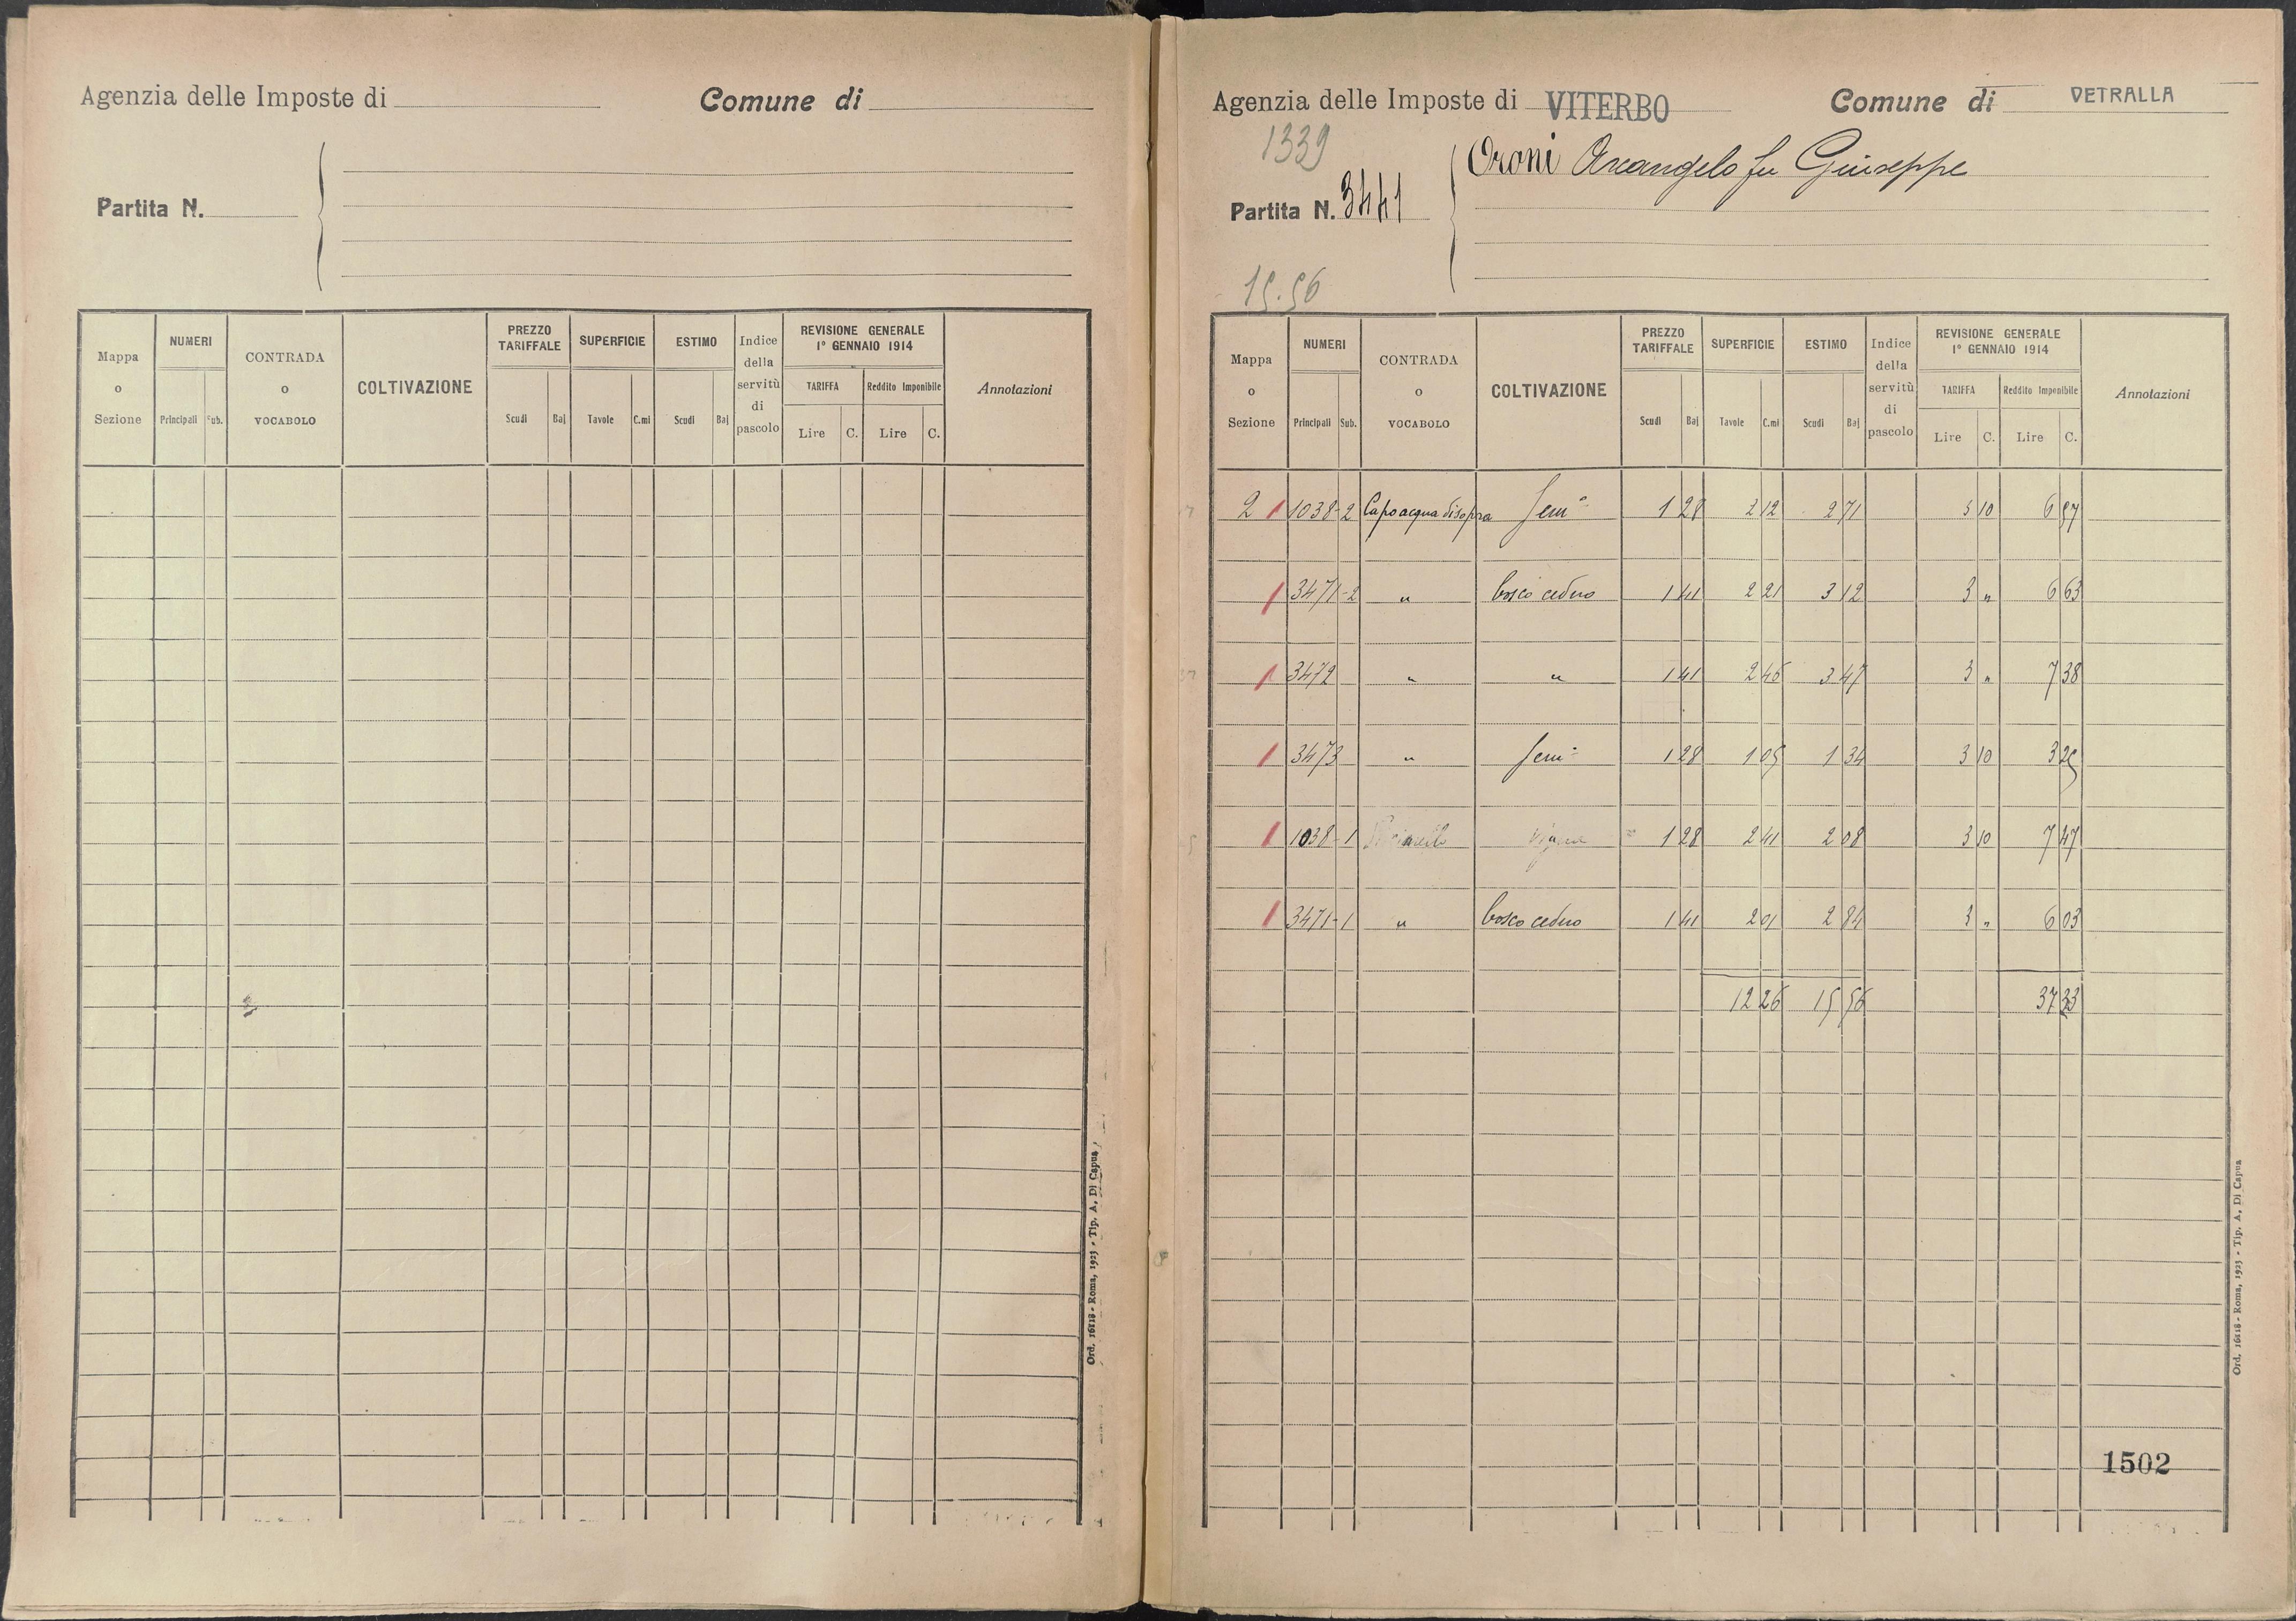 Agenzia delle Imposte di
Comune di
Partita N.
Mappa o Sezione
NUMERI
Principali
Sub.
CONTRADA o VOCABOLO
COLTIVAZIONE
PREZZO TARIFFALE
Scudi
Baj
SUPERFICIE
Tavole
C.mi
ESTIMO
Scudi
Baj
Indice della servitù di pascolo
REVISIONE GENERALE 1º GENNAIO 1914
TARIFFA
Lire
C.
Reddito Imponibile
Lire
C.
Annotazioni
Ord. 16118 - Roma, 1923 - Tip. A. Di Capua
Agenzia delle Imposte di VITERBO
Comune di VETRALLA
1339
Oroni Arcangelo fu Giuseppe
Partita N. 3441
15.56
Mappa o Sezione
NUMERI
Principali
Sub.
CONTRADA o VOCABOLO
COLTIVAZIONE
PREZZO TARIFFALE
Scudi
Baj
SUPERFICIE
Tavole
C.mi
ESTIMO
Scudi
Baj
Indice della servitù di pascolo
REVISIONE GENERALE 1º GENNAIO 1914
TARIFFA
Lire
C.
Reddito Imponibile
Lire
C.
Annotazioni
2 1 1038-2 Capoacqua disopra Semº 1 28 2 12 2 71 3 10 6 57
1 3471-2 " bosco ceduo 1 41 2 21 3 12 3 " 6 63
1 3472 " " 1 41 2 46 3 47 3 " 7 38
1 3473 " Semº 1 28 1 05 1 34 3 10 3 25
1 1038-1 vigna 1 28 2 41 2 08 3 10 7 47
1 3471-1 " bosco ceduo 1 41 2 01 2 84 3 " 6 03
12 26 15 56 37 33
1502
Ord. 16118 - Roma, 1923 - Tip. A. Di Capua